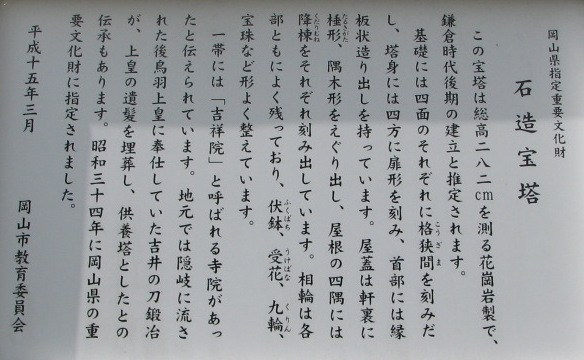 岡山県指定重要文化財
石造宝塔
この宝塔は総高二八二cmを測る花崗岩製で、
鎌倉時代後期の建立と推定されます。
基礎には四面のそれぞれに格狭間を刻みだ
し、塔身には四方に扉形を刻み、首部には縁
板状造り出しを持っています。屋蓋は軒裏に
棰形、隅木形をえぐり出し、屋根の四隅には
降棟をそれぞれ刻み出しています。相輪は各
部ともによく残っており、伏鉢、受花、九輪、
宝珠など形よく整えています。
一帯には「吉祥院」と呼ばれる寺院があっ
たと伝えられています。地元では隠岐に流さ
れた後鳥羽上皇に奉仕していた吉井の刀鍛冶
が、上皇の遺髪を埋葬し、供養塔としたとの
伝承もあります。昭和三十四年に岡山県の重
要文化財に指定されました。
平成十五年三月
岡山市教育委員会